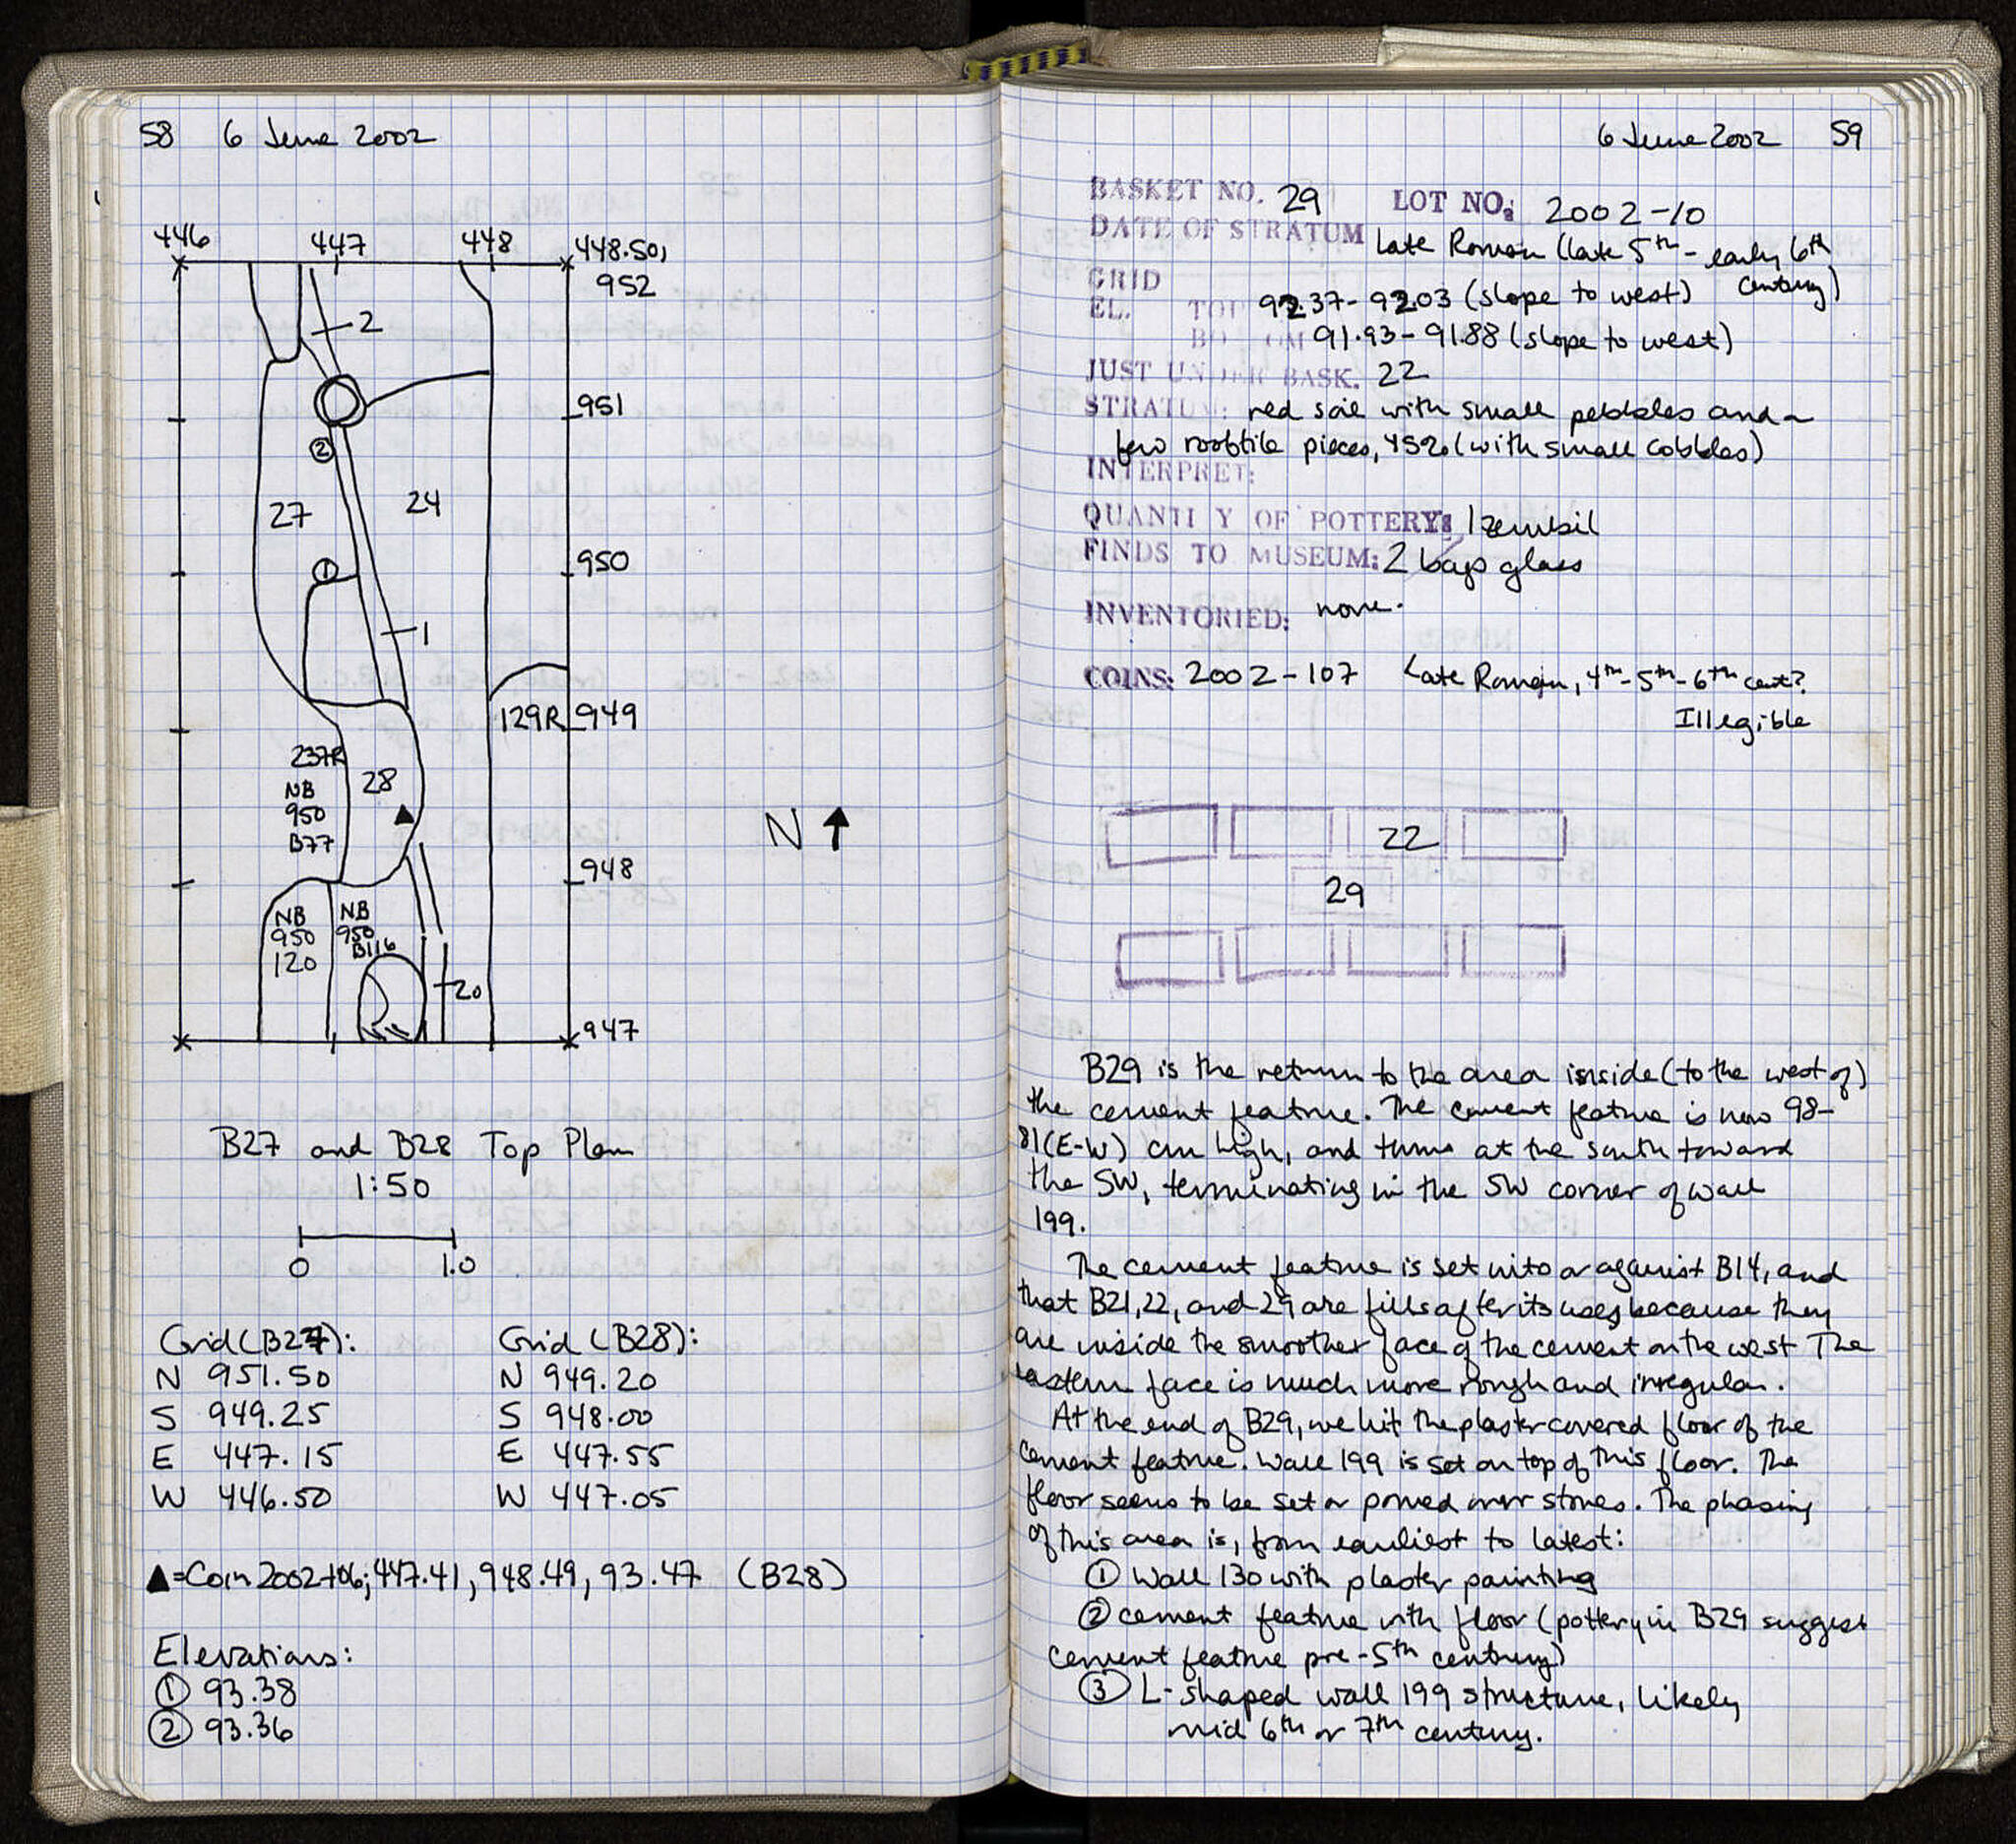 58 6 June 2002
446 447 448 448.50,
952
2
951
②
27 24
950
①
1
129R 949
237R
28
NB
950
B77
N ↑
948
NB NB
950 950
120 B116
20
947
B27 and B28 Top Plan
1:50
0 1.0
Grid (B27): Grid (B28):
N 951.50 N 949.20
S 949.25 S 948.00
E 447.15 E 447.55
W 446.50 W 447.05
▲=Coin 2002-106; 447.41, 948.49, 93.47 (B28)
Elevations:
① 93.38
② 93.36
6 June 2002 59
BASKET NO. 29 LOT NO: 2002-10
DATE OF STRATUM Late Roman (late 5th - early 6th
century)
GRID
EL. TOP 92.37-92.03 (slope to west)
BOTTOM 91.93-91.88 (slope to west)
JUST UNDER BASK. 22
STRATUM: red soil with small pebbles and a
few rooftile pieces, 45% (with small cobbles)
INTERPRET:
QUANTITY OF POTTERY: 1 zembil
FINDS TO MUSEUM: 2 bags glass
INVENTORIED: none.
COINS: 2002-107 Late Roman, 4th-5th-6th cent?
Illegible
22
29
B29 is the return to the area inside (to the west of)
the cement feature. The cement feature is now 98-
81 (E-W) cm high, and turns at the south toward
the SW, terminating in the SW corner of wall
199.
The cement feature is set into or against B14, and
that B21, 22, and 29 are fills after its uses because they
are inside the smoother face of the cement on the west The
eastern face is much more rough and irregular.
At the end of B29, we hit the plaster covered floor of the
cement feature. Wall 199 is set on top of this floor. The
floor seems to be set or poured over stones. The phasing
of this area is, from earliest to latest:
① Wall 130 with plaster painting
② cement feature with floor (pottery in B29 suggest
cement feature pre-5th century)
③ L-shaped wall 199 structure, likely
mid 6th or 7th century.